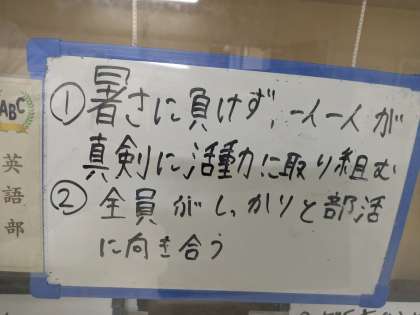 ①暑さに負けず、一人一人が
真剣に活動に取り組む
②全員がしっかりと部活
に向き合う
ABC
英語部